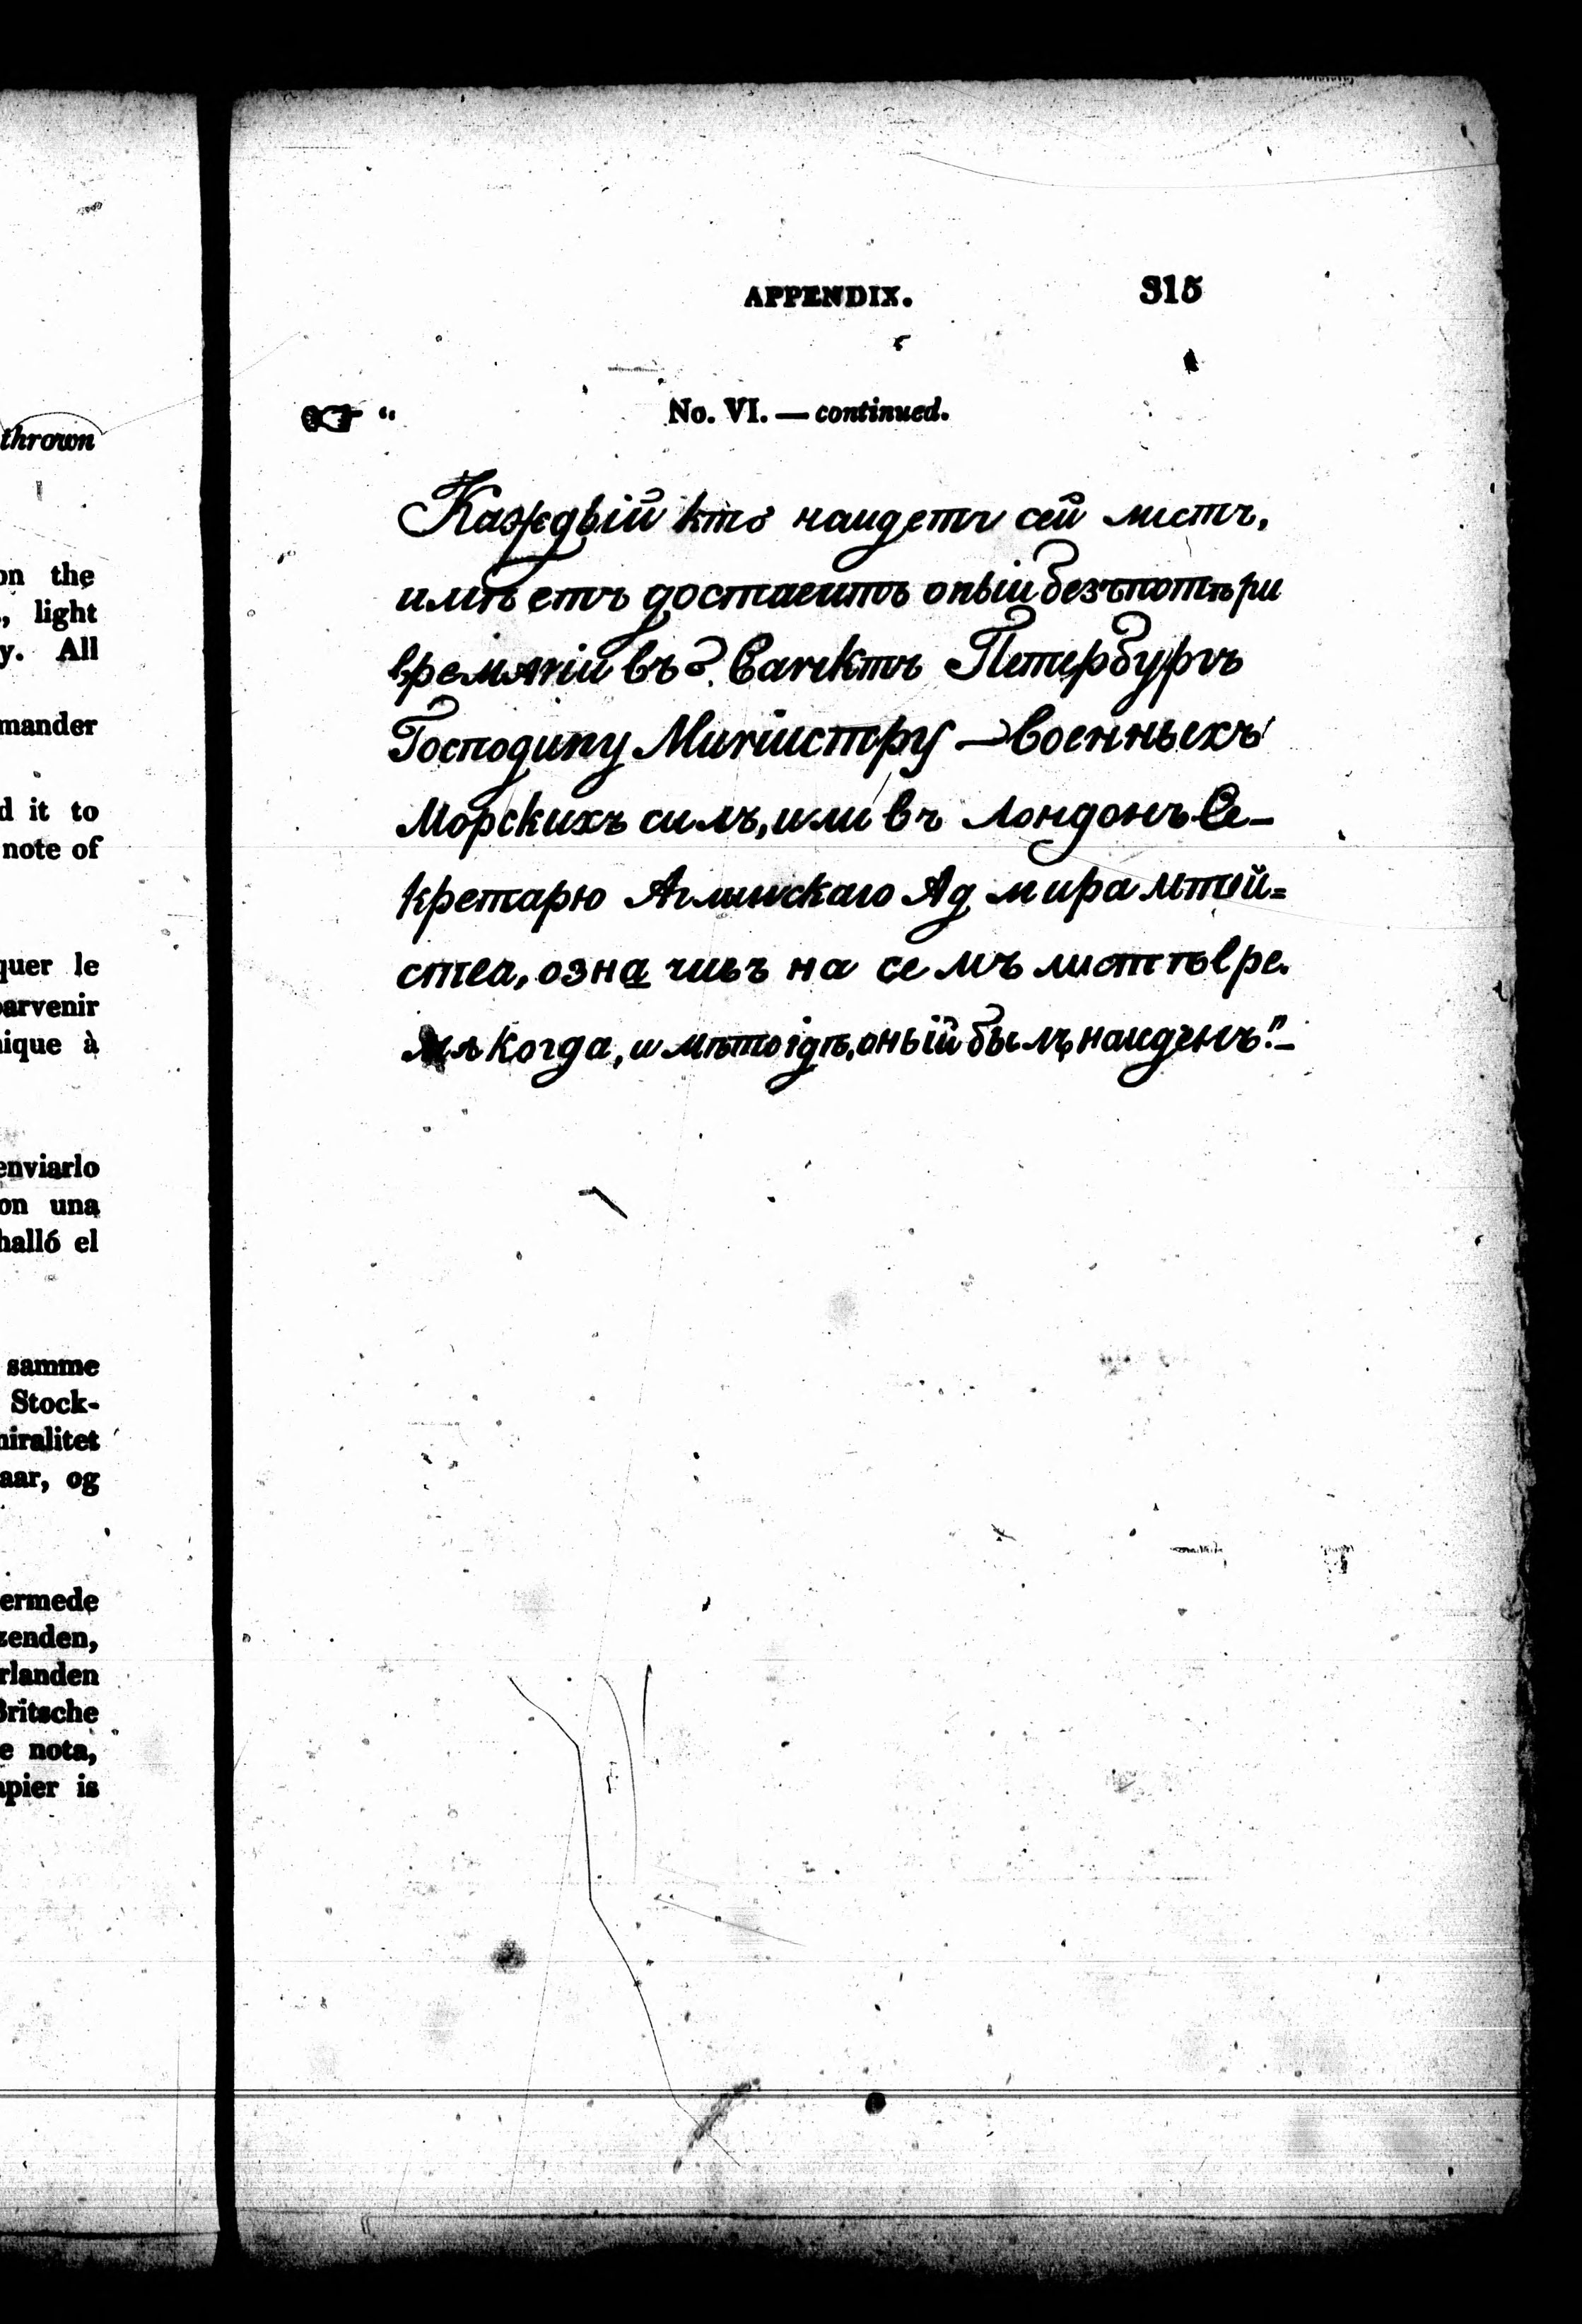 thrown
on the
, light
y. All
mander
d it to
note of
quer le
parvenir
nique à
enviarlo
on una
halló el
samme
Stock-
miralitet
aar, og
ermede
zenden,
rlanden
Britsche
e nota,
apier is
APPENDIX. 315
☞ “ No. VI. — continued.
Каждый кто наидетъ сей листъ,
имѣетъ достаеить оный безъ потѣри
времянии въ Санктъ Петербургъ
Господину Министру — военныхъ
Морскихъ силъ, или въ Лондонъ Се-
кретарю Аглинскаго Адмиралтей=
ства, означивъ на семъ листѣ вре.
мя когда, и мѣто гдѣ, оный былъ наиденъ.”—